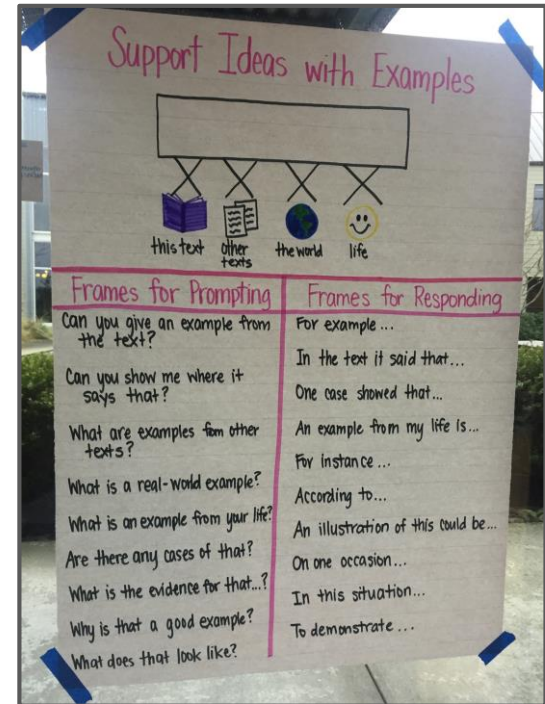 Support Ideas with Examples
this text
other
texts
the world
life
Frames for Prompting
Can you give an example from
the text?
Can you show me where it
says that?
What are examples from other
texts?
What is a real-world example?
What is an example from your life?
Are there any cases of that?
What is the evidence for that...?
Why is that a good example?
What does that look like?
Frames for Responding
For example...
In the text it said that...
One case showed that...
An example from my life is...
For instance...
According to...
An illustration of this could be...
On one occasion...
In this situation...
To demonstrate...